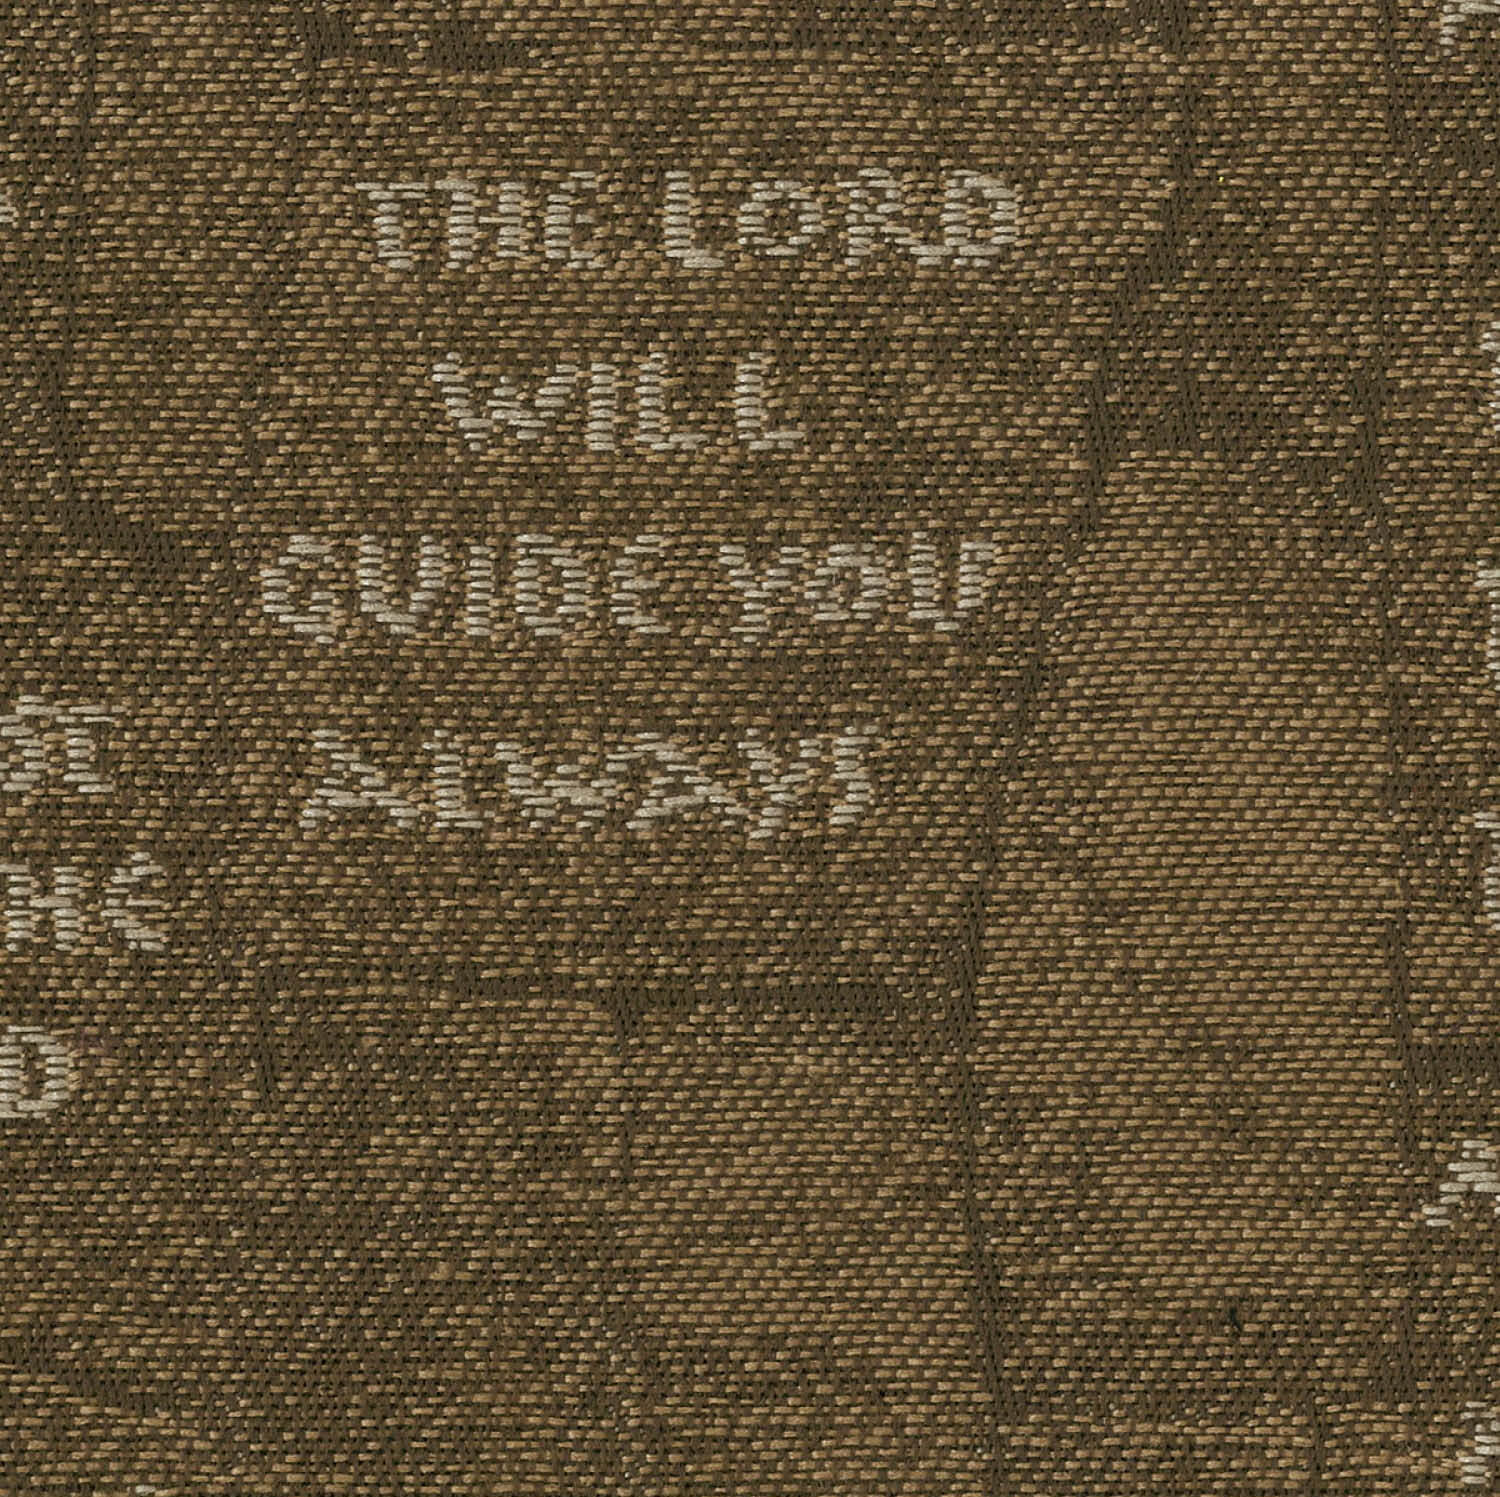 THE LORD
WILL
GUIDE YOU
ALWAYS